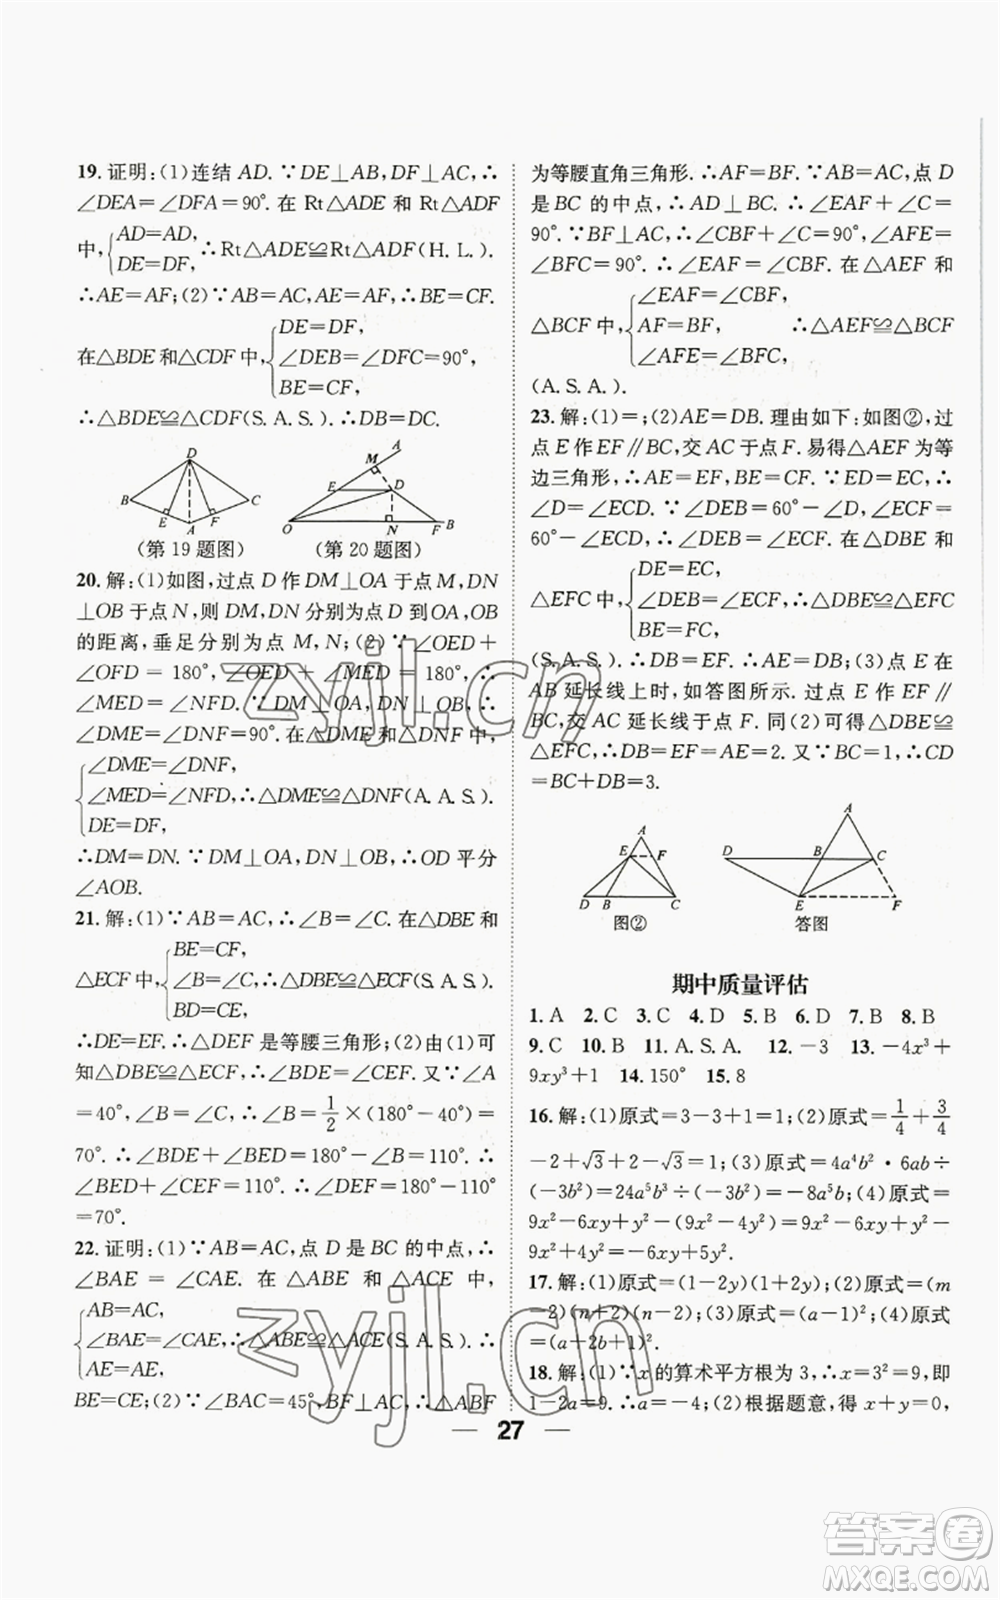 19. 证明:(1)连结 AD. ∵DE⊥AB,DF⊥AC,∴
∠DEA=∠DFA=90°. 在 Rt△ADE 和 Rt△ADF
中,{AD=AD, DE=DF, ∴Rt△ADE≌Rt△ADF(H. L.).
∴AE=AF;(2)∵AB=AC,AE=AF,∴BE=CF.
在△BDE 和△CDF 中,{DE=DF, ∠DEB=∠DFC=90°, BE=CF,
∴△BDE≌△CDF(S. A. S.). ∴DB=DC.
D B C E F A
(第 19 题图)
A M E D O N F B
(第 20 题图)
20. 解:(1)如图,过点 D 作 DM⊥OA 于点 M,DN
⊥OB 于点 N,则 DM,DN 分别为点 D 到 OA,OB
的距离,垂足分别为点 M,N;(2)∵∠OED+
∠OFD=180°,∠OED+∠MED=180°,∴
∠MED=∠NFD. ∵DM⊥OA,DN⊥OB,∴
∠DME=∠DNF=90°. 在△DME 和△DNF 中,
{∠DME=∠DNF, ∠MED=∠NFD, DE=DF, ∴△DME≌△DNF(A. A. S.).
∴DM=DN. ∵DM⊥OA,DN⊥OB,∴OD 平分
∠AOB.
21. 解:(1)∵AB=AC,∴∠B=∠C. 在△DBE 和
△ECF 中,{BE=CF, ∠B=∠C, BD=CE, ∴△DBE≌△ECF(S. A. S.).
∴DE=EF. ∴△DEF 是等腰三角形;(2)由(1)可
知△DBE≌△ECF,∴∠BDE=∠CEF. 又∵∠A
=40°,∠B=∠C,∴∠B=1/2×(180°-40°)=
70°. ∴∠BDE+∠BED=180°-∠B=110°. ∴
∠BED+∠CEF=110°. ∴∠DEF=180°-110°
=70°.
22. 证明:(1)∵AB=AC,点 D 是 BC 的中点,∴
∠BAE=∠CAE. 在△ABE 和△ACE 中,
{AB=AC, ∠BAE=∠CAE, AE=AE, ∴△ABE≌△ACE(S. A. S.). ∴
BE=CE;(2)∵∠BAC=45°,BF⊥AC,∴△ABF
为等腰直角三角形. ∴AF=BF. ∵AB=AC,点 D
是 BC 的中点,∴AD⊥BC. ∴∠EAF+∠C=
90°. ∵BF⊥AC,∴∠CBF+∠C=90°,∠AFE=
∠BFC=90°. ∴∠EAF=∠CBF. 在△AEF 和
△BCF 中,{∠EAF=∠CBF, AF=BF, ∠AFE=∠BFC, ∴△AEF≌△BCF
(A. S. A.).
23. 解:(1)=;(2)AE=DB. 理由如下:如图②,过
点 E 作 EF∥BC,交 AC 于点 F. 易得△AEF 为等
边三角形,∴AE=EF,BE=FC. ∵ED=EC,∴
∠D=∠ECD. ∵∠DEB=60°-∠D,∠ECF=
60°-∠ECD,∴∠DEB=∠ECF. 在△DBE 和
△EFC 中,{DE=EC, ∠DEB=∠ECF, BE=FC, ∴△DBE≌△EFC
(S. A. S.). ∴DB=EF. ∴AE=DB;(3)点 E 在
AB 延长线上时,如答图所示. 过点 E 作 EF∥
BC,交 AC 延长线于点 F. 同(2)可得△DBE≌
△EFC,∴DB=EF=AE=2. 又∵BC=1,∴CD
=BC+DB=3.
A E F D B C
图②
A D B C E F
答图
期中质量评估
1. A 2. C 3. C 4. D 5. B 6. D 7. B 8. B
9. C 10. B 11. A. S. A. 12. -3 13. -4x³+
9xy³+1 14. 150° 15. 8
16. 解:(1)原式=3-3+1=1;(2)原式=1/4+3/4
-2+√3+2-√3=1;(3)原式=4a⁴b²·6ab÷
(-3b²)=24a⁵b³÷(-3b²)=-8a⁵b;(4)原式=
9x²-6xy+y²-(9x²-4y²)=9x²-6xy+y²-
9x²+4y²=-6xy+5y².
17. 解:(1)原式=(1-2y)(1+2y);(2)原式=(m
-2)(n+2)(n-2);(3)原式=(a-1)²;(4)原式
=(a-2b+1)².
18. 解:(1)∵x 的算术平方根为 3,∴x=3²=9,即
1-2a=9. ∴a=-4;(2)根据题意,得 x+y=0,
27
zyjl.cn
zyjl.cn
答案卷
MXQE.COM